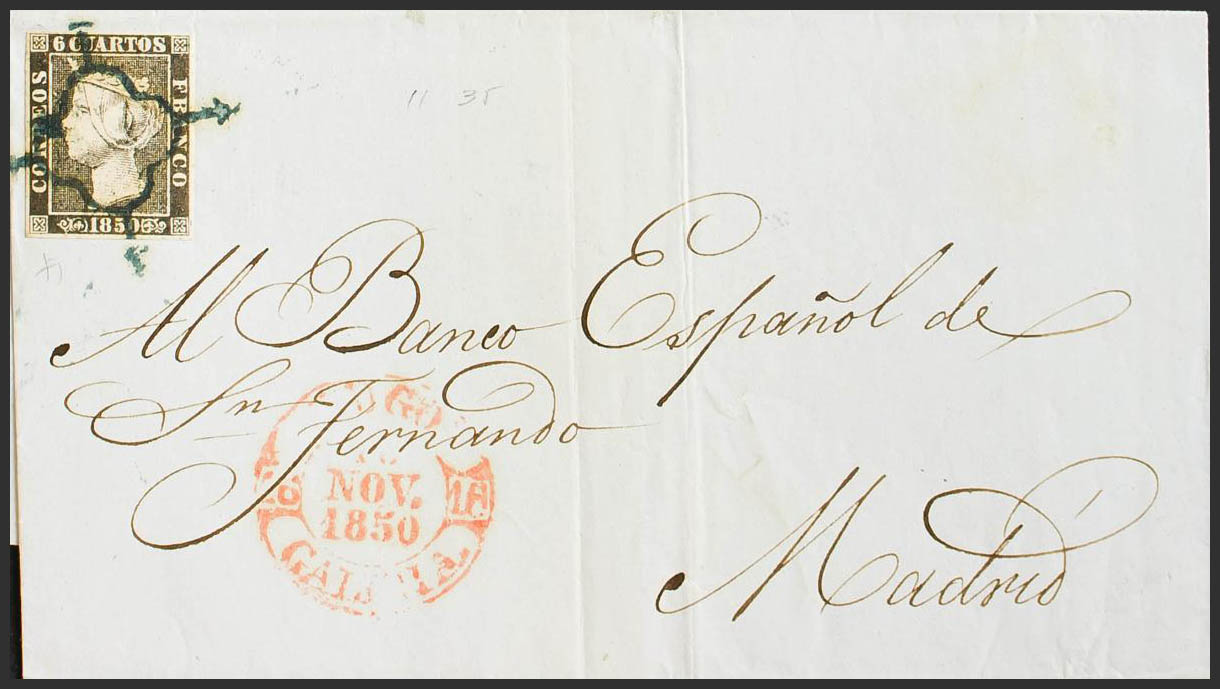 6 CUARTOS
CORREOS
FRANCO
1850
11 35
Al Banco Español de
Sn Fernando
Madrid
NOV.
1850
GALICIA.